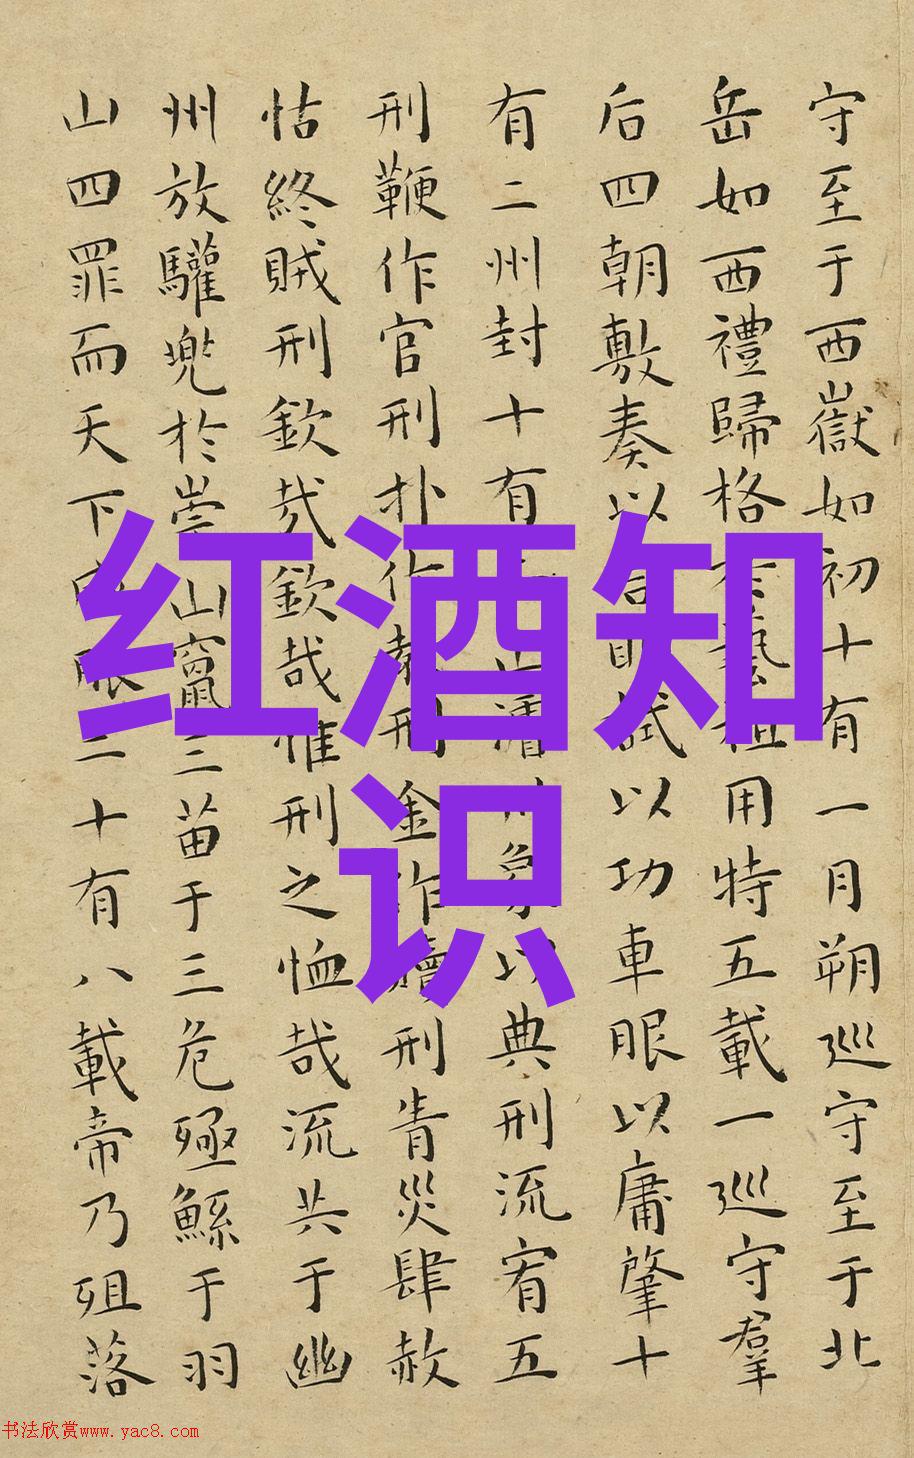 守至于西嶽如初十有一月朔巡守至于北
岳如西禮歸格藝祖用特五載一巡守羣
后四朝敷奏以言明試以功車服以庸肇十
有二州封十有二山濬川象以典刑流宥五
刑鞭作官刑朴作教刑金作贖刑眚災肆赦
怙終賊刑欽哉欽哉惟刑之恤哉流共于幽
州放驩兜於崇山竄三苗于三危殛鯀于羽
山四罪而天下咸服二十有八載帝乃殂落
红酒知
识
书法欣赏www.yac8.com